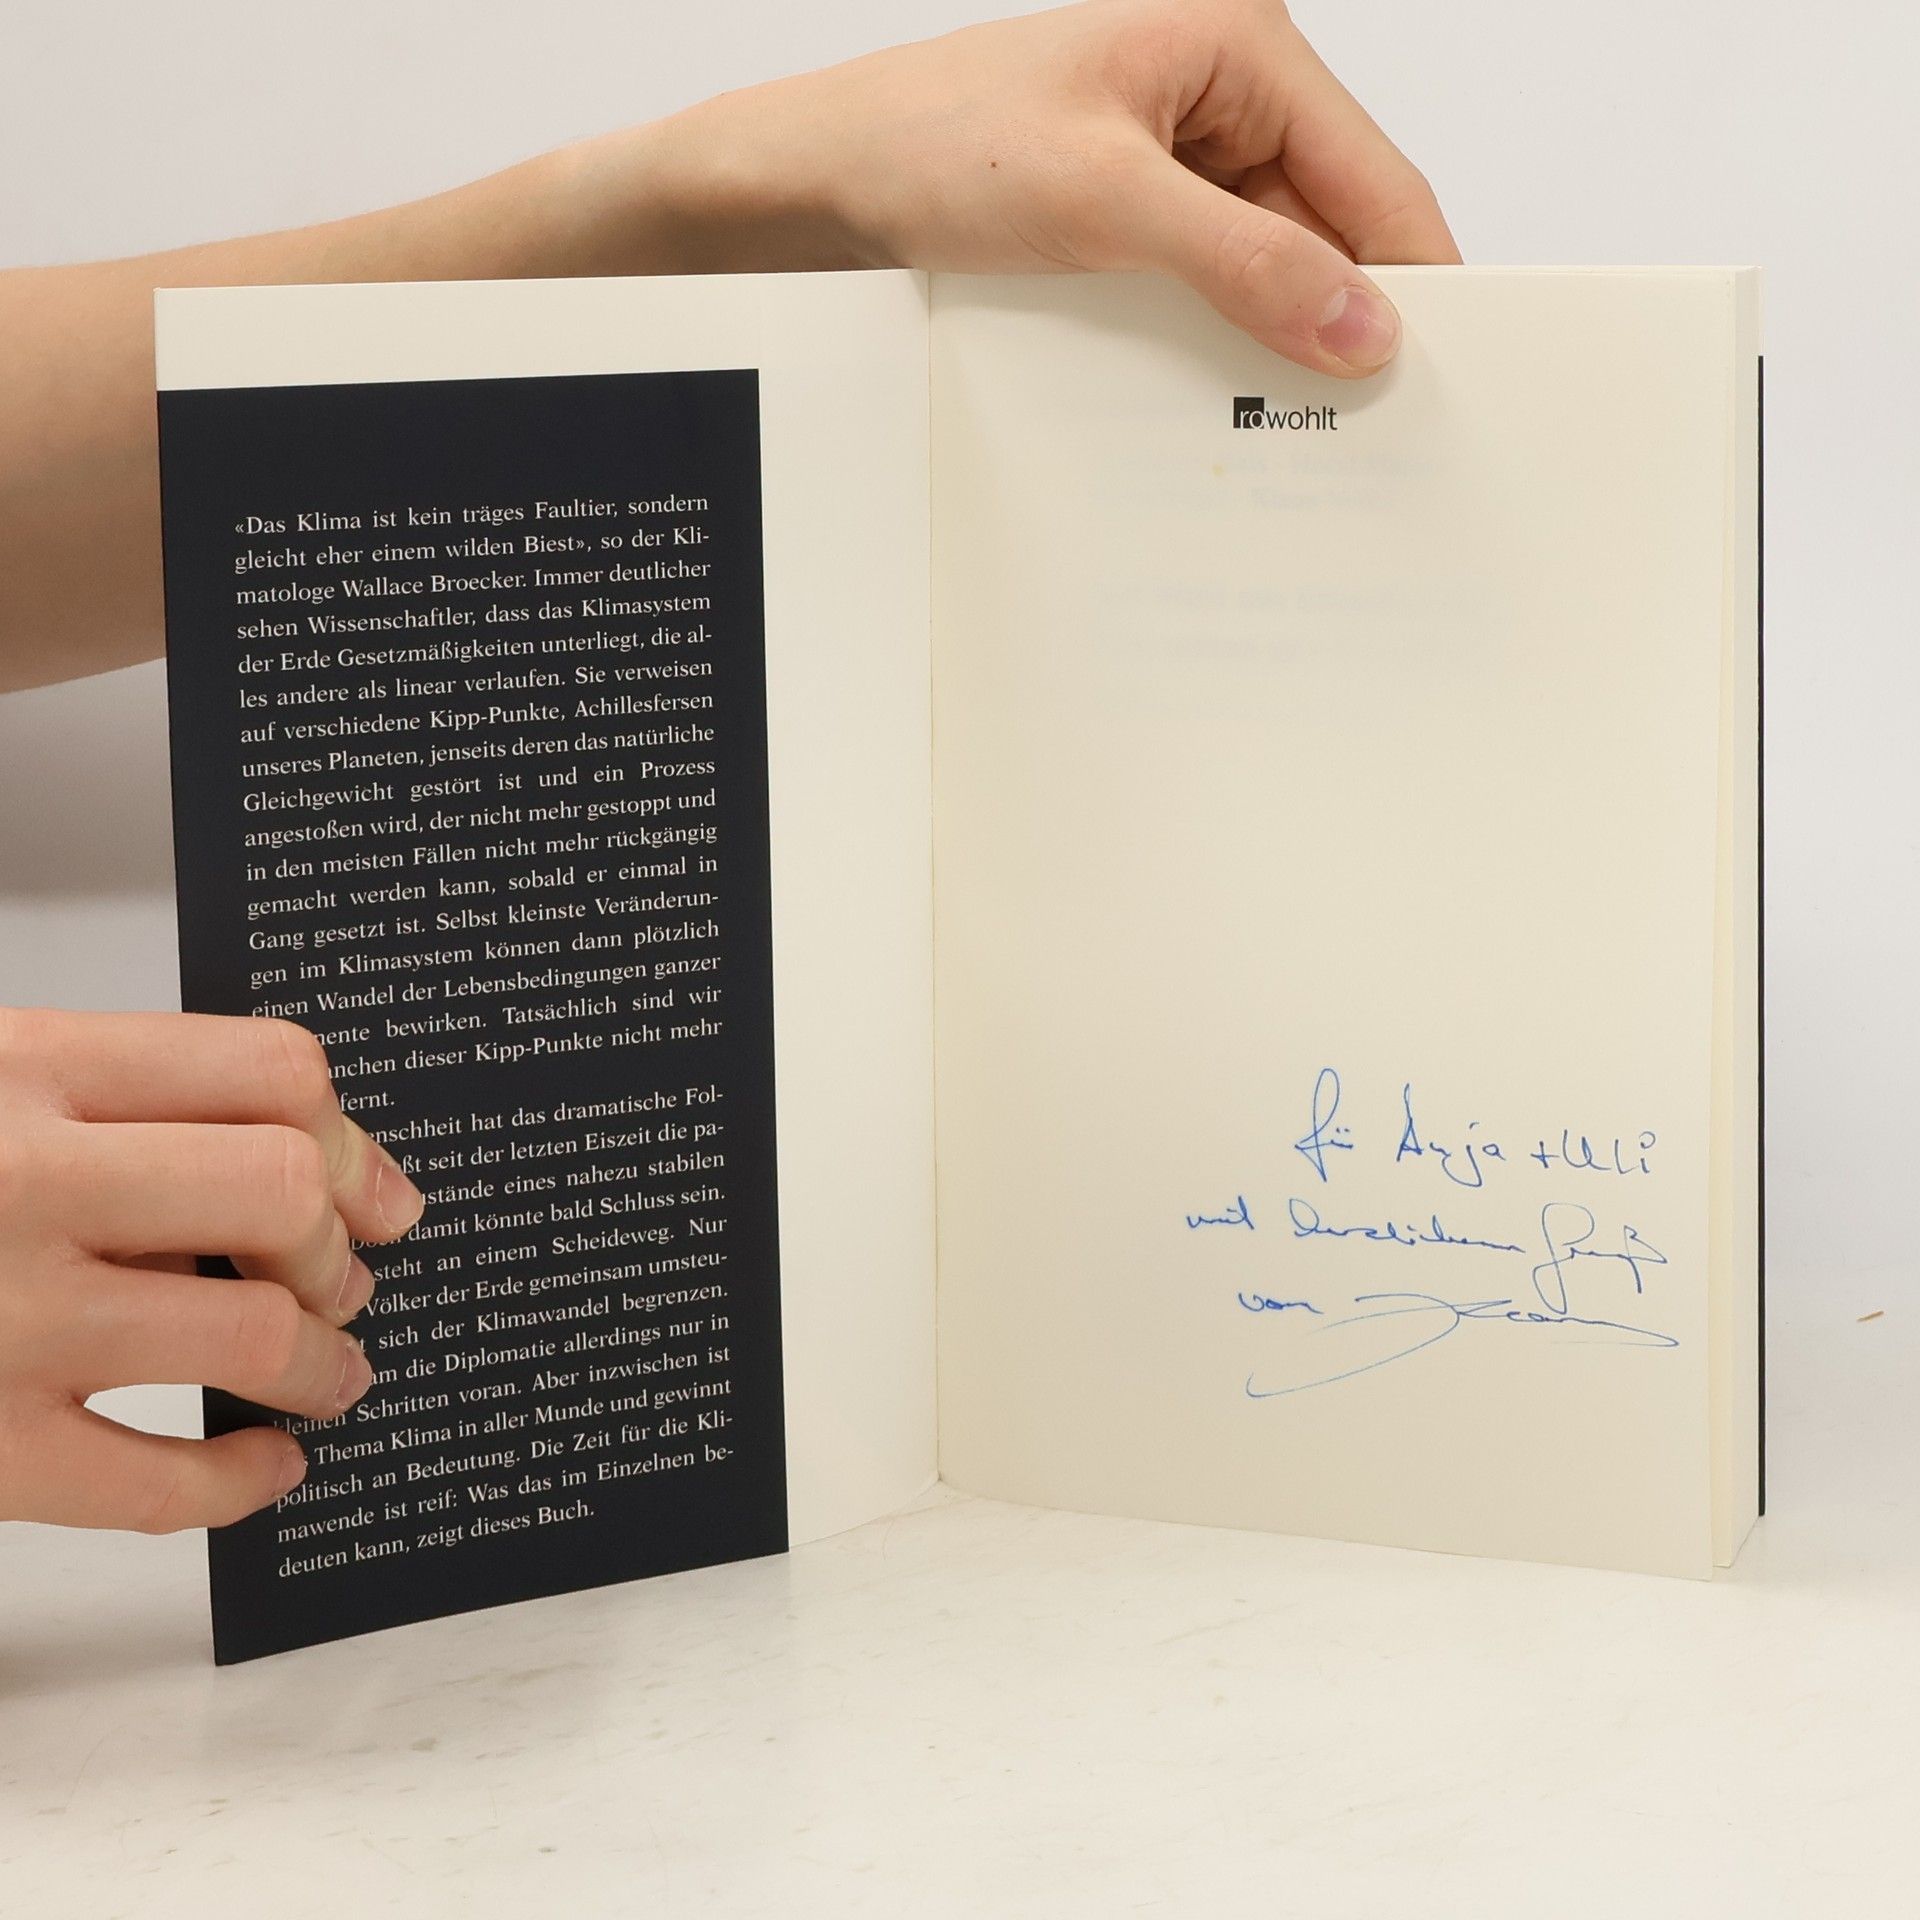 «Das Klima ist kein träges Faultier, sondern
gleicht eher einem wilden Biest», so der Kli-
matologe Wallace Broecker. Immer deutlicher
sehen Wissenschaftler, dass das Klimasystem
der Erde Gesetzmäßigkeiten unterliegt, die al-
les andere als linear verlaufen. Sie verweisen
auf verschiedene Kipp-Punkte, Achillesfersen
unseres Planeten, jenseits deren das natürliche
Gleichgewicht gestört ist und ein Prozess
angestoßen wird, der nicht mehr gestoppt und
in den meisten Fällen nicht mehr rückgängig
gemacht werden kann, sobald er einmal in
Gang gesetzt ist. Selbst kleinste Veränderun-
gen im Klimasystem können dann plötzlich
einen Wandel der Lebensbedingungen ganzer
bewirken. Tatsächlich sind wir
dieser Kipp-Punkte nicht mehr
fernt.
hat das dramatische Fol-
seit der letzten Eiszeit die pa-
eines nahezu stabilen
damit könnte bald Schluss sein.
steht an einem Scheideweg. Nur
Völker der Erde gemeinsam umsteu-
sich der Klimawandel begrenzen.
die Diplomatie allerdings nur in
kleinen Schritten voran. Aber inzwischen ist
Thema Klima in aller Munde und gewinnt
politisch an Bedeutung. Die Zeit für die Kli-
mawende ist reif: Was das im Einzelnen be-
deuten kann, zeigt dieses Buch.
rowohlt
für Anja + Uli
mit herzlichem Gruß
von